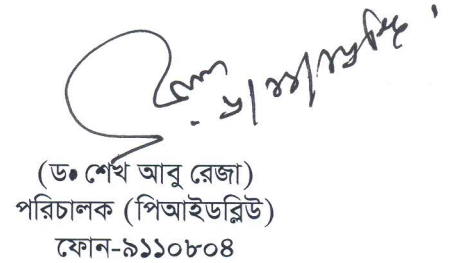 (ড. শেখ আবু রেজা)
পরিচালক (পিআইডব্লিউ)
ফোন-৯১১০৮০৪